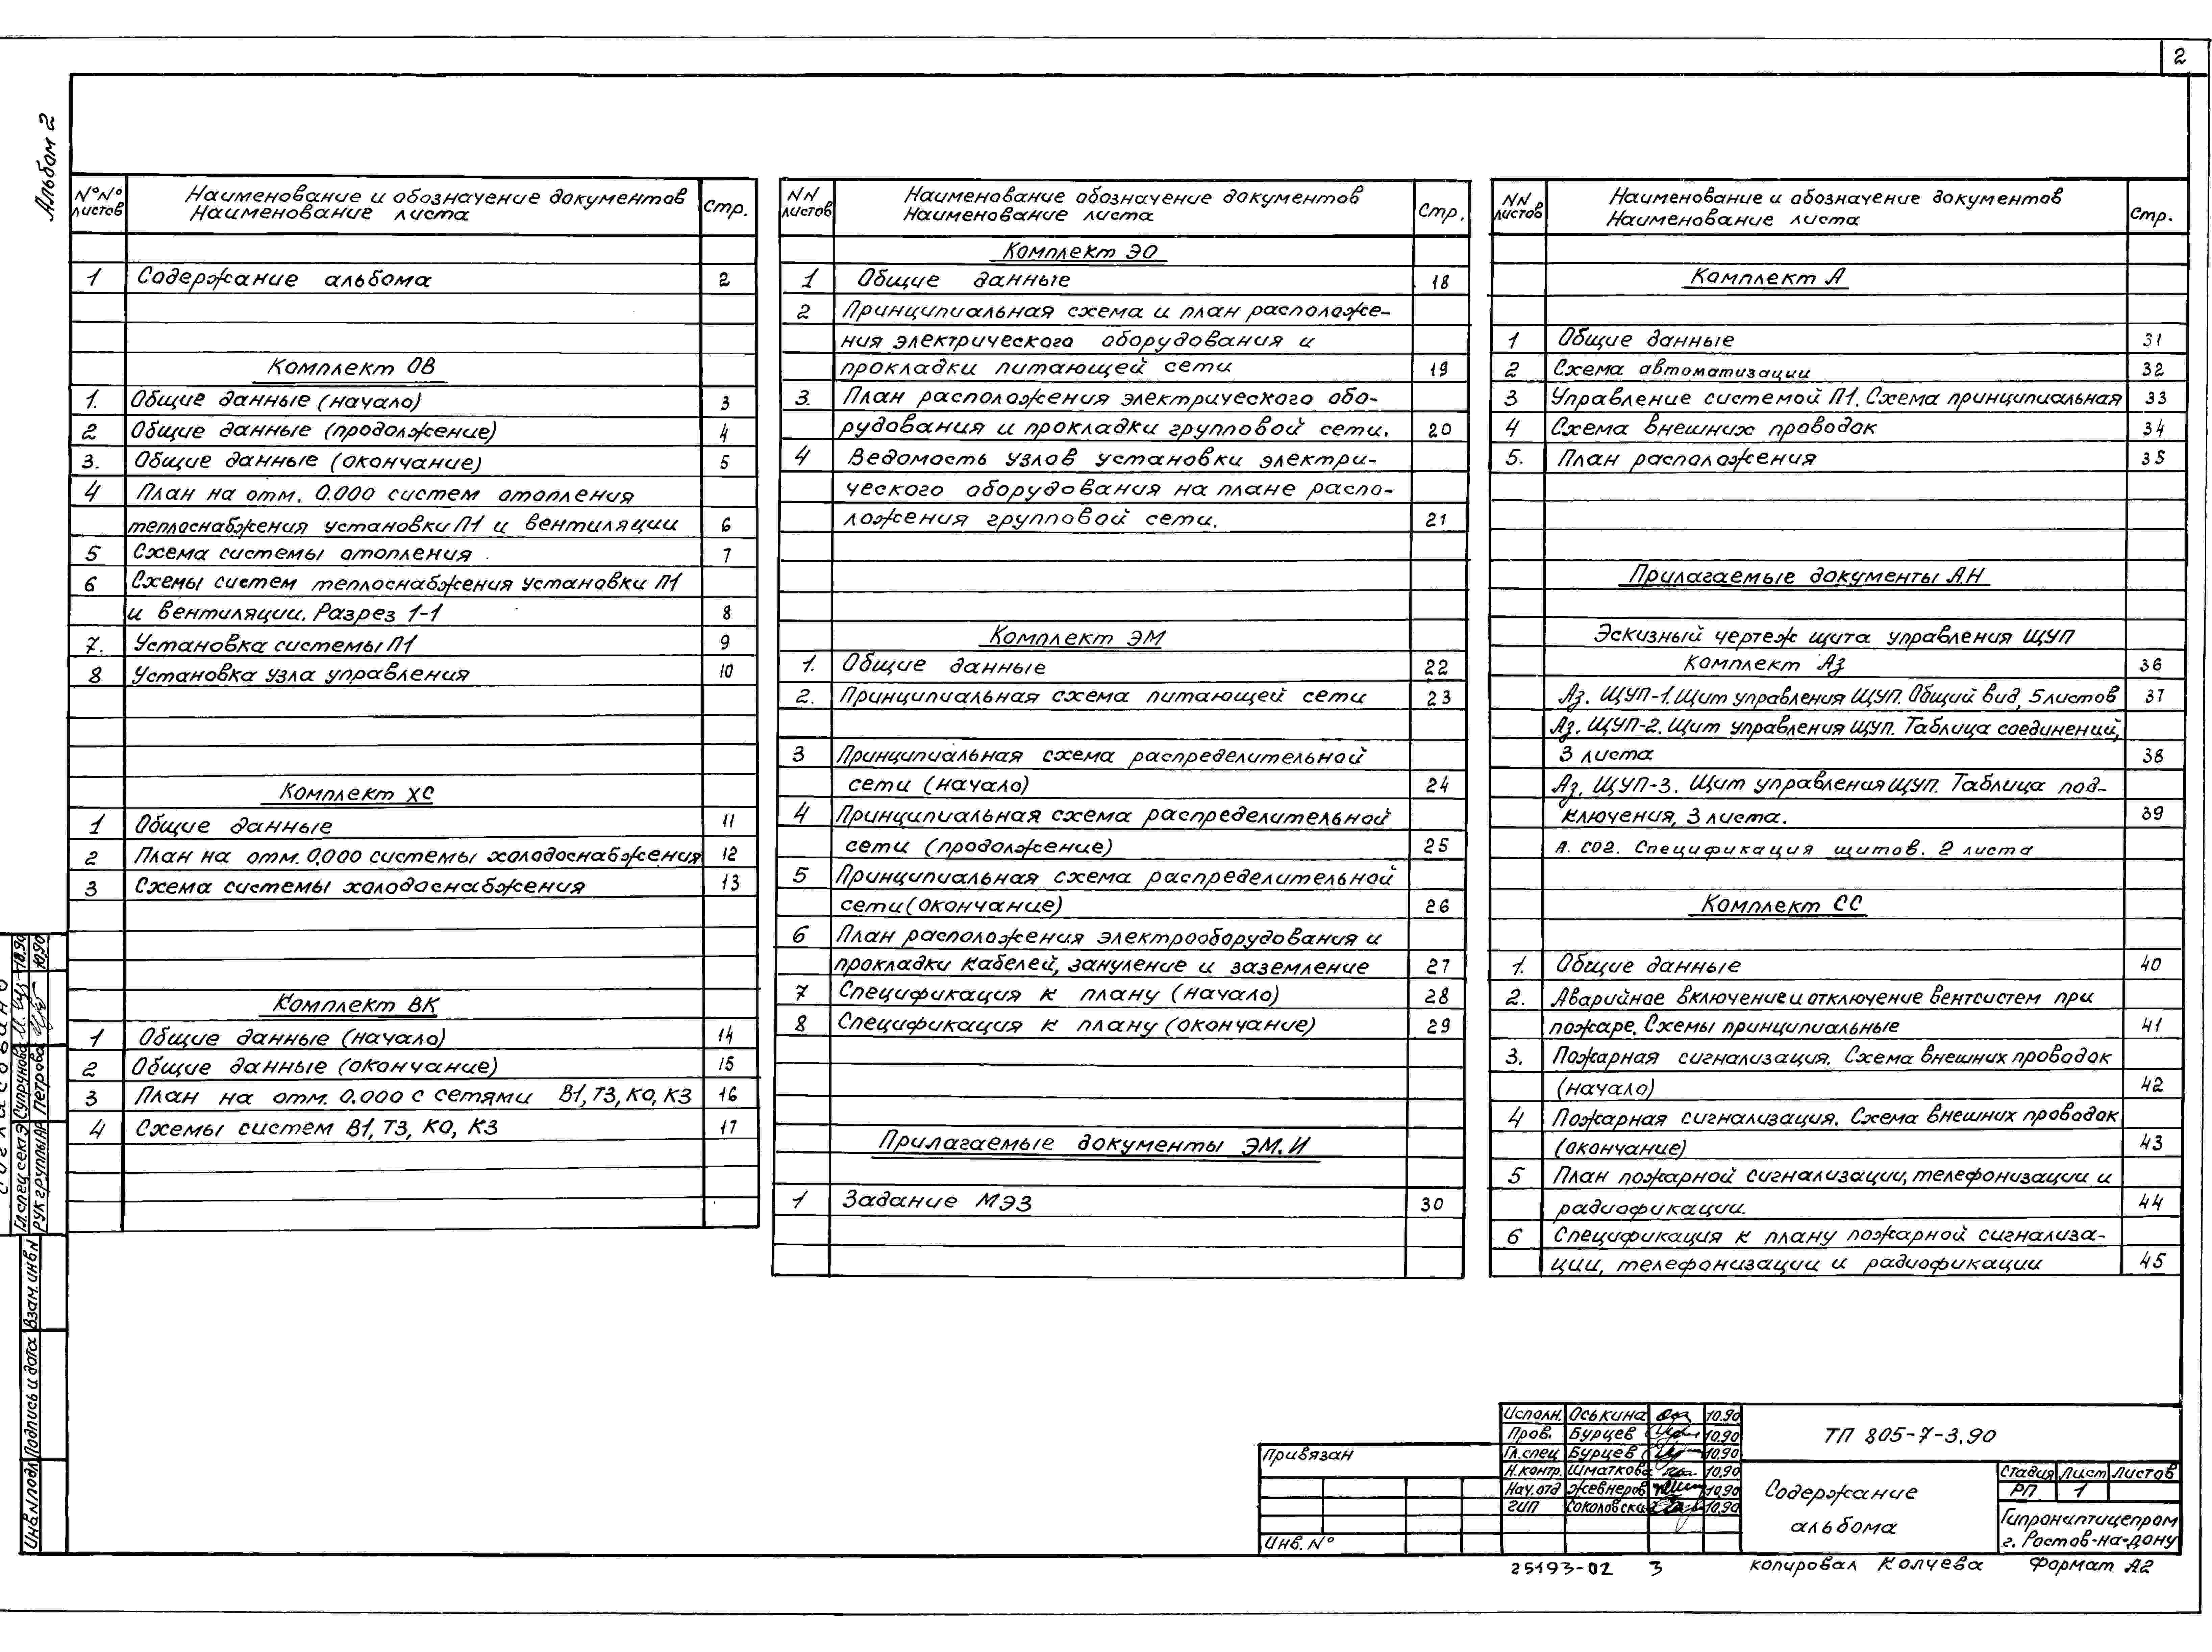 2
Альбом 2
N°N° листов
Наименование и обозначение документов
Наименование листа
Стр.
1 Содержание альбома 2
Комплект ОВ
1. Общие данные (начало) 3
2 Общие данные (продолжение) 4
3. Общие данные (окончание) 5
4 План на отм. 0.000 систем отопления
теплоснабжения установки П1 и вентиляции 6
5 Схема системы отопления 7
6 Схемы систем теплоснабжения установки П1
и вентиляции. Разрез 1-1 8
7. Установка системы П1 9
8 Установка узла управления 10
Комплект ХС
1 Общие данные 11
2 План на отм. 0,000 системы холодоснабжения 12
3 Схема системы холодоснабжения 13
Комплект ВК
1 Общие данные (начало) 14
2 Общие данные (окончание) 15
3 План на отм. 0.000 с сетями В1, Т3, К0, К3 16
4 Схемы систем В1, Т3, К0, К3 17
NN листов
Наименование обозначение документов
Наименование листа
Стр.
Комплект ЭО
1 Общие данные 18
2 Принципиальная схема и план расположе-
ния электрического оборудования и
прокладки питающей сети 19
3. План расположения электрического обо-
рудования и прокладки групповой сети. 20
4 Ведомость узлов установки электри-
ческого оборудования на плане распо-
ложения групповой сети. 21
Комплект ЭМ
1. Общие данные 22
2. Принципиальная схема питающей сети 23
3 Принципиальная схема распределительной
сети (начало) 24
4 Принципиальная схема распределительной
сети (продолжение) 25
5 Принципиальная схема распределительной
сети (окончание) 26
6 План расположения электрооборудования и
прокладки кабелей, зануление и заземление 27
7 Спецификация к плану (начало) 28
8 Спецификация к плану (окончание) 29
Прилагаемые документы ЭМ.И
1 Задание МЭЗ 30
NN листов
Наименование и обозначение документов
Наименование листа
Стр.
Комплект А
1 Общие данные 31
2 Схема автоматизации 32
3 Управление системой П1. Схема принципиальная 33
4 Схема внешних проводок 34
5. План расположения 35
Прилагаемые документы А.Н
Эскизный чертеж щита управления ЩУП
Комплект Аз 36
Аз. ЩУП-1. Щит управления ЩУП. Общий вид, 5 листов 37
Аз. ЩУП-2. Щит управления ЩУП. Таблица соединений,
3 листа 38
Аз. ЩУП-3. Щит управления ЩУП. Таблица под-
ключения, 3 листа. 39
А. СО2. Спецификация щитов. 2 листа
Комплект СС
1. Общие данные 40
2. Аварийное включение и отключение вентсистем при
пожаре. Схемы принципиальные 41
3. Пожарная сигнализация. Схема внешних проводок
(начало) 42
4 Пожарная сигнализация. Схема внешних проводок
(окончание) 43
5 План пожарной сигнализации, телефонизации и
радиофикации. 44
6 Спецификация к плану пожарной сигнализа-
ции, телефонизации и радиофикации 45
Согласовано
Гл.спец сект Э Супрунова 10.90
Рук группы АР Петрова 10.90
Взам. инв N
Подпись и дата
Инв. N подл
Привязан
Инв. N°
Исполн. Оськина 10.90
Пров. Бурцев 10.90
Гл.спец Бурцев 10.90
Н.контр. Шматкова 10.90
Нач.отд Жевнеров 10.90
ГИП Соколовский 10.90
ТП 805-7-3.90
Содержание
альбома
Стадия Лист Листов
РП 1
Гипрониптицепром
г. Ростов-на-Дону
25193-02 3
копировал Колчева
Формат А2